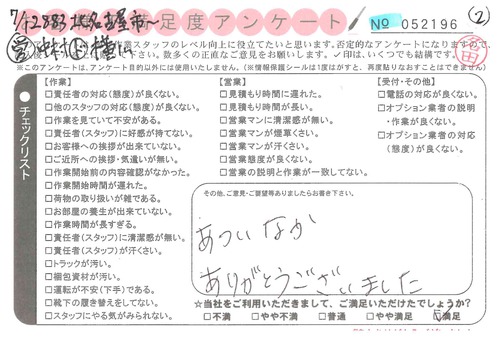 満足度アンケート
No 052196
②
業スタッフのレベル向上に役立てたいと思います。否定的なアンケートになりますので、
数多くの正直なご意見をお願いします。✓印は、いくつでも結構です。
※このアンケートは、アンケート目的以外には使用いたしません。(※情報保護シールは1度はがすと、再度貼りなおすことはできません)
チェックリスト
【作業】
□責任者の対応(態度)が良くない。
□他のスタッフの対応(態度)が良くない。
□作業を見ていて不安がある。
□責任者(スタッフ)に好感が持てない。
□お客様への挨拶が出来ていない。
□ご近所への挨拶・気遣いが無い。
□作業開始前の内容確認がなかった。
□作業開始時間が遅れた。
□荷物の取り扱いが雑である。
□お部屋の養生が出来ていない。
□作業時間が長すぎる。
□責任者(スタッフ)に清潔感が無い。
□責任者(スタッフ)が汗くさい。
□トラックが汚い。
□梱包資材が汚い。
□運転が不安(下手)である。
□靴下の履き替えをしてない。
□スタッフにやる気がみられない。
【営業】
□見積もり時間に遅れた。
□見積もり時間が長い。
□営業マンに清潔感が無い。
□営業マンが煙草くさい。
□営業マンが汗くさい。
□営業態度が良くない。
□営業の説明と作業が一致してない。
【受付・その他】
□電話の対応が良くない。
□オプション業者の説明
・作業が良くない。
□オプション業者の対応
(態度)が良くない。
その他、ご意見・ご要望等ありましたらお書き下さい。
あついなか
ありがとうございました
☆当社をご利用いただきまして、ご満足いただけたでしょうか?
□不満 □やや不満 □普通 □やや満足 □満足